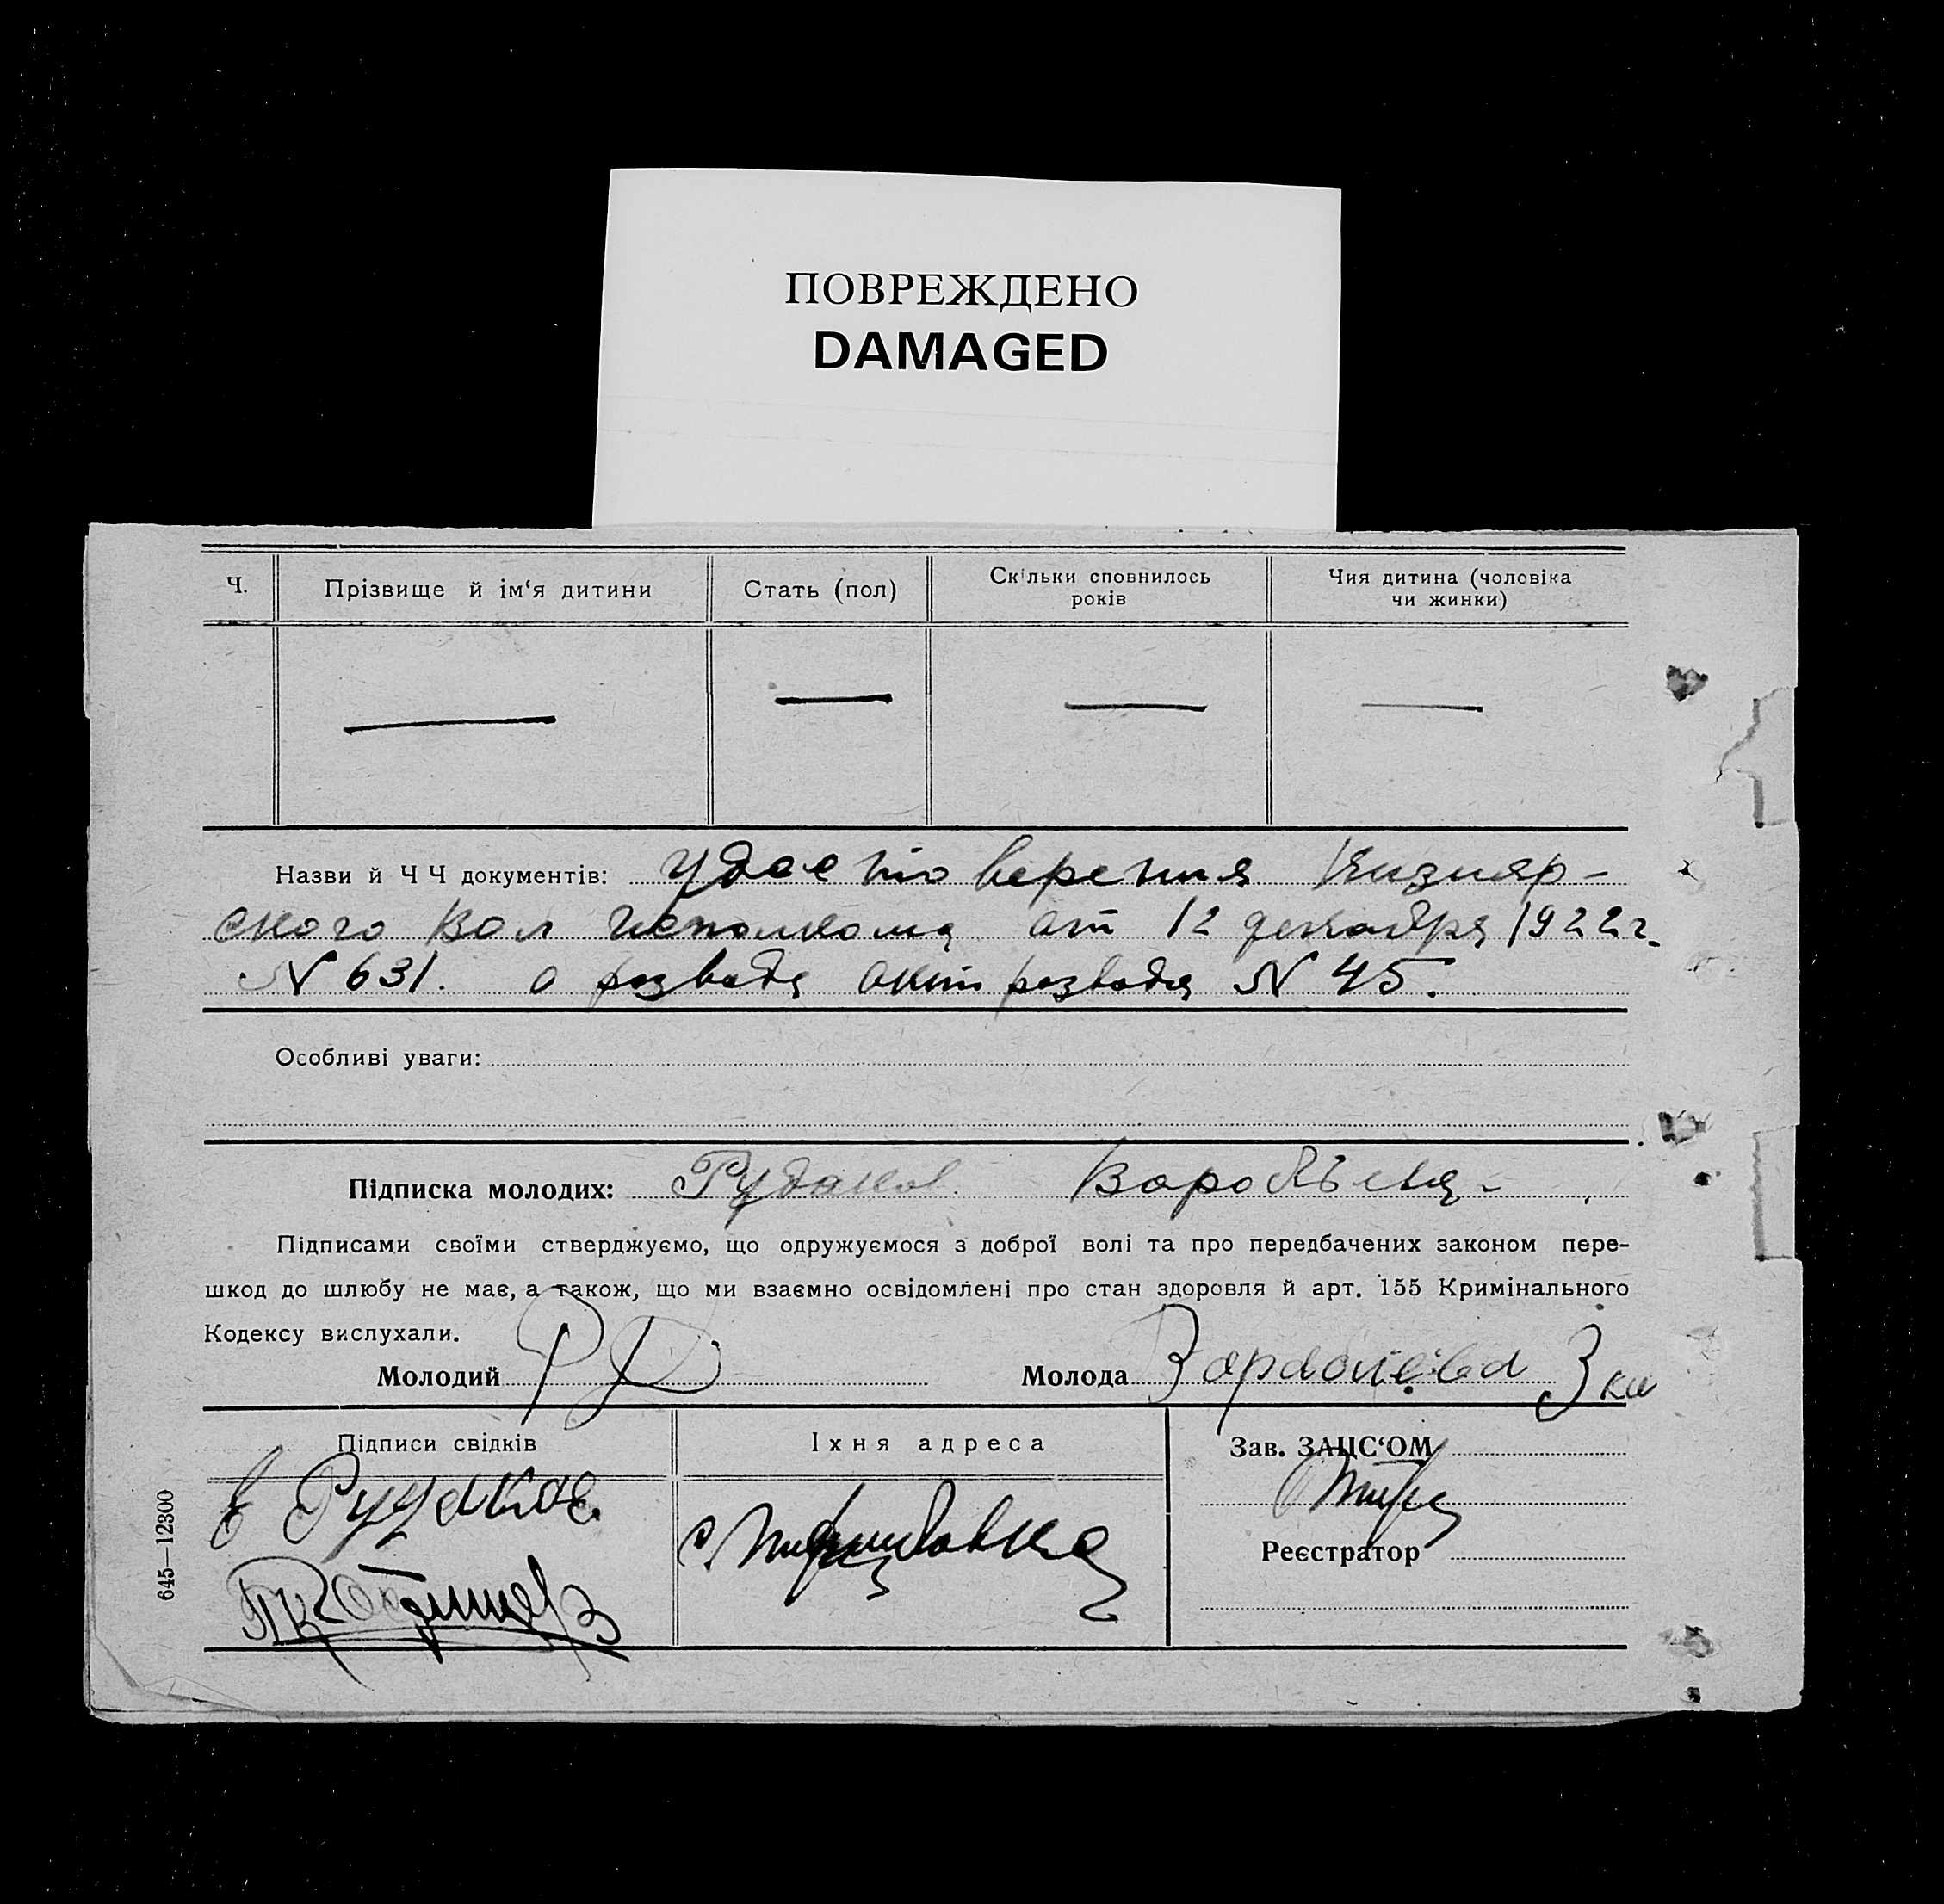 ПОВРЕЖДЕНО
DAMAGED
Ч.
Прізвище й ім‘я дитини
Стать (пол)
Скільки сповнилось
років
Чия дитина (чоловіка
чи жинки)
Назви й Ч Ч документів: Удостоверения Кизияр-
ского Вол Исполкома от 12 декабря 1922 г.
N 631. о развода акт развода N 45.
Особливі уваги:
Підписка молодих: Рудаков Воробьева
Підписами своїми стверджуємо, що одружуємося з доброї волі та про передбачених законом пере-
шкод до шлюбу не має, а також, що ми взаємно освідомлені про стан здоровля й арт. 155 Кримінального
Кодексу вислухали.
Молодий
Молода
Підписи свідків
Їхня адреса
Зав. ЗАЦС‘ОМ
Рудаков
Реєстратор
645—12300